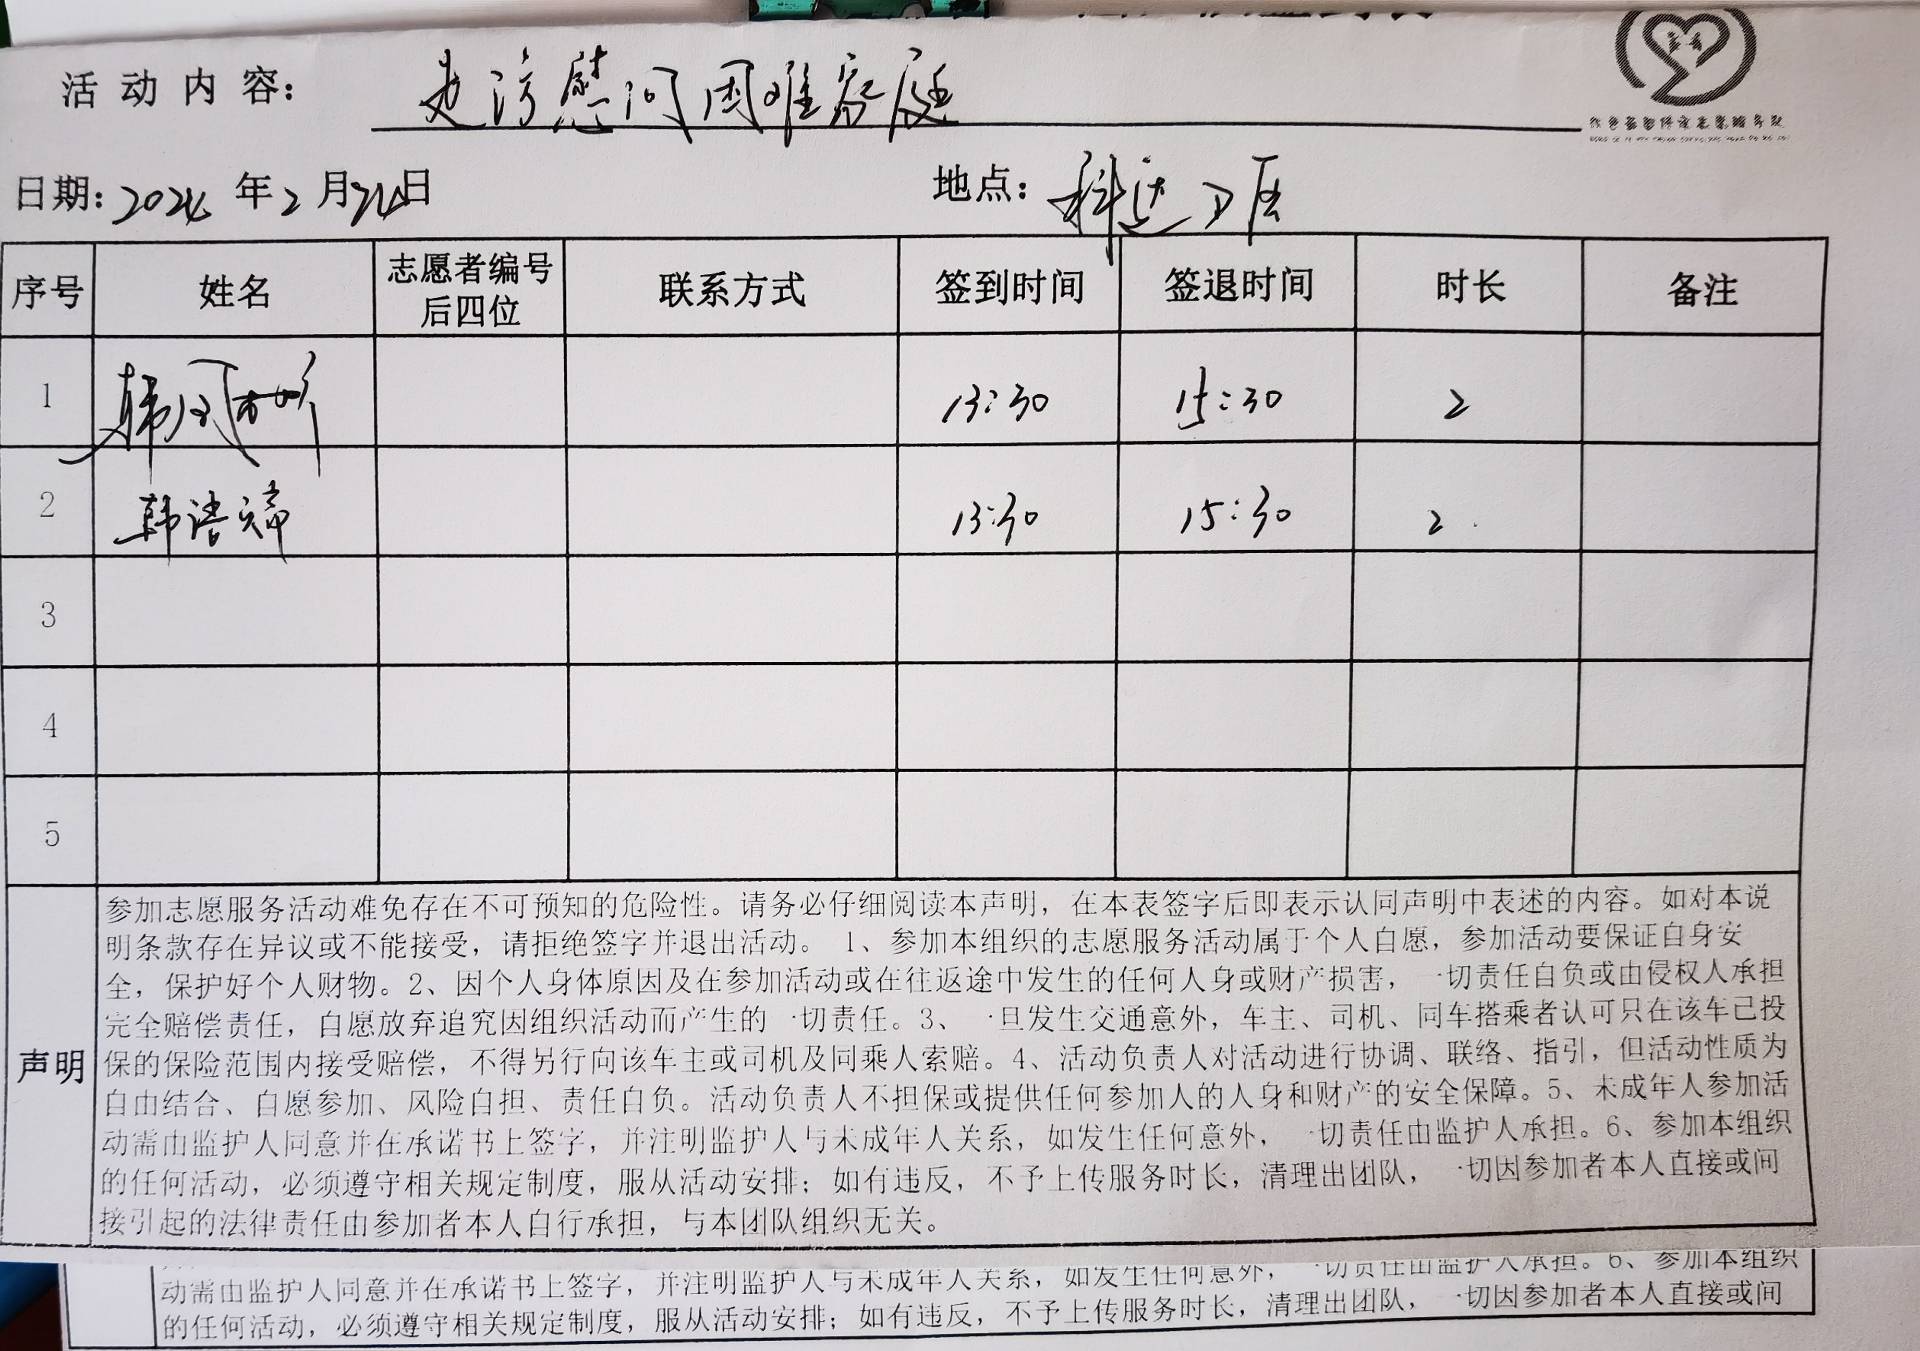 活动内容： 走访慰问困难家庭
日期：2024年2月24日 地点：科达
序号 姓名 志愿者编号后四位 联系方式 签到时间 签退时间 时长 备注
1 韩 13:30 15:30 2
2 韩语 13:30 15:30 2
3
4
5
声明
参加志愿服务活动难免存在不可预知的危险性。请务必仔细阅读本声明，在本表签字后即表示认同声明中表述的内容。如对本说
明条款存在异议或不能接受，请拒绝签字并退出活动。 1、参加本组织的志愿服务活动属于个人自愿，参加活动要保证自身安
全，保护好个人财物。2、因个人身体原因及在参加活动或在往返途中发生的任何人身或财产损害，一切责任自负或由侵权人承担
完全赔偿责任，自愿放弃追究因组织活动而产生的一切责任。3、一旦发生交通意外，车主、司机、同车搭乘者认可只在该车已投
保的保险范围内接受赔偿，不得另行向该车主或司机及同乘人索赔。4、活动负责人对活动进行协调、联络、指引，但活动性质为
自由结合、自愿参加、风险自担、责任自负。活动负责人不担保或提供任何参加人的人身和财产的安全保障。5、未成年人参加活
动需由监护人同意并在承诺书上签字，并注明监护人与未成年人关系，如发生任何意外，一切责任由监护人承担。6、参加本组织
的任何活动，必须遵守相关规定制度，服从活动安排；如有违反，不予上传服务时长，清理出团队，一切因参加者本人直接或间
接引起的法律责任由参加者本人自行承担，与本团队组织无关。
动需由监护人同意并在承诺书上签字，并注明监护人与未成年人关系，如发生任何意外，一切责任由监护人承担。6、参加本组织
的任何活动，必须遵守相关规定制度，服从活动安排；如有违反，不予上传服务时长，清理出团队，一切因参加者本人直接或间